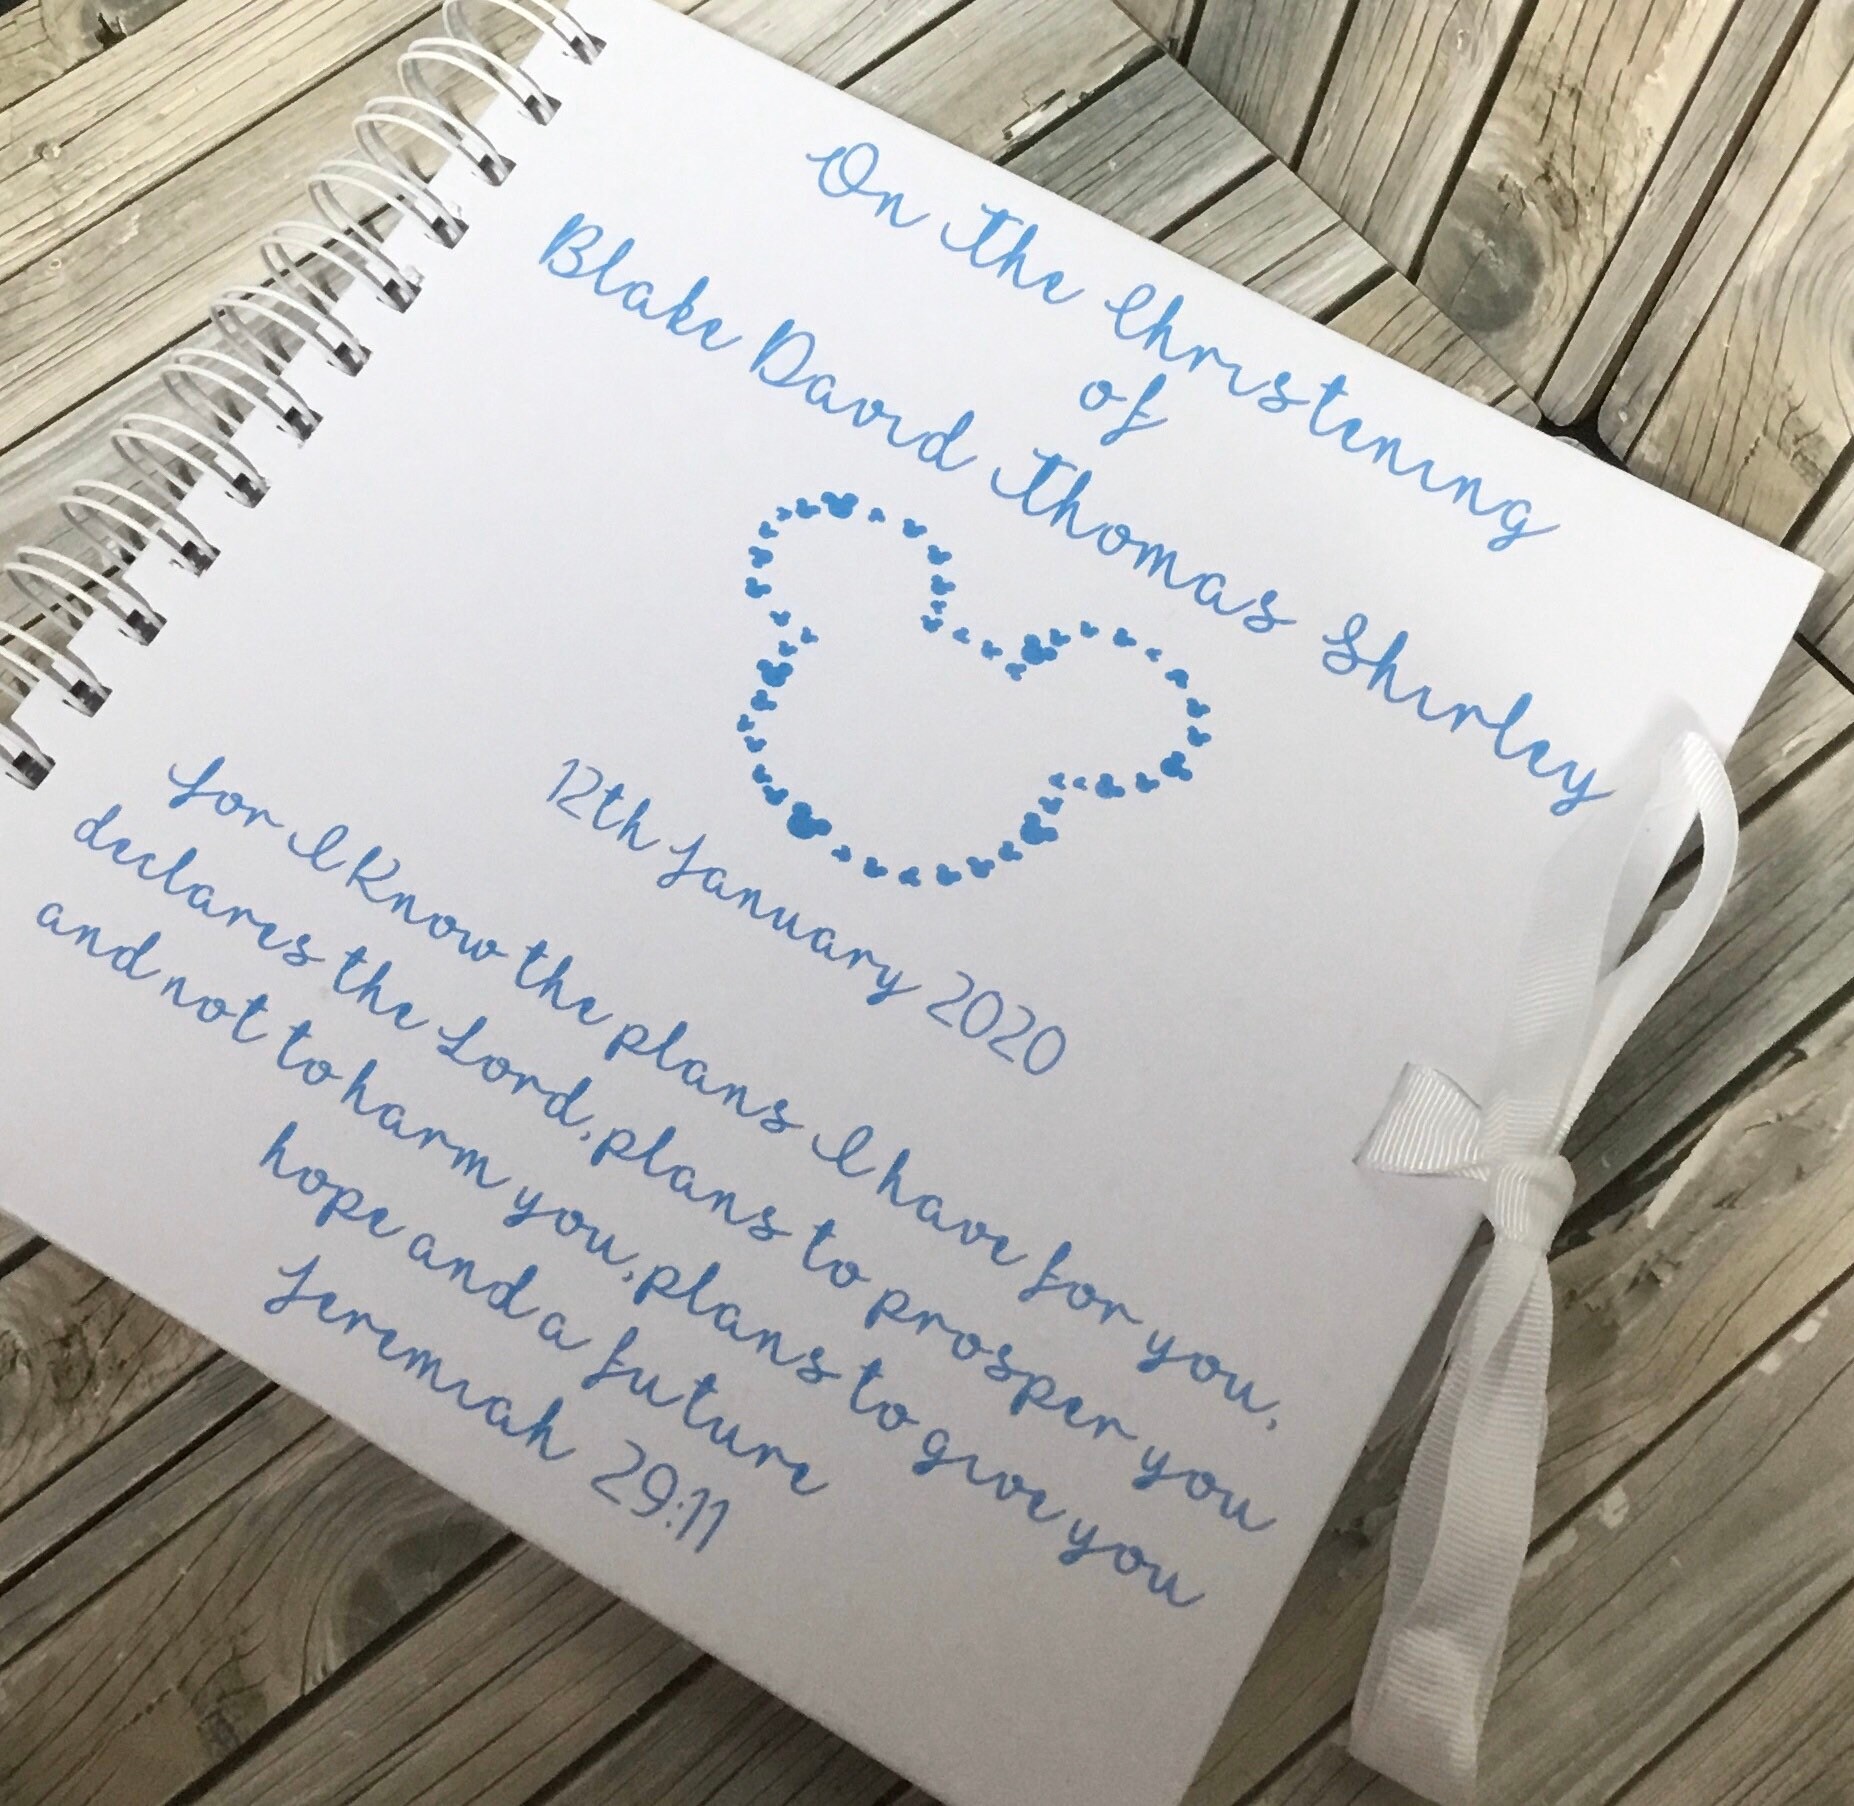 On The Christening
of
Blake David Thomas Shirley
12th January 2020
for I Know the plans I have for you,
declares the Lord, plans to prosper you
and not to harm you, plans to give you
hope and a future
Jeremiah 29:11